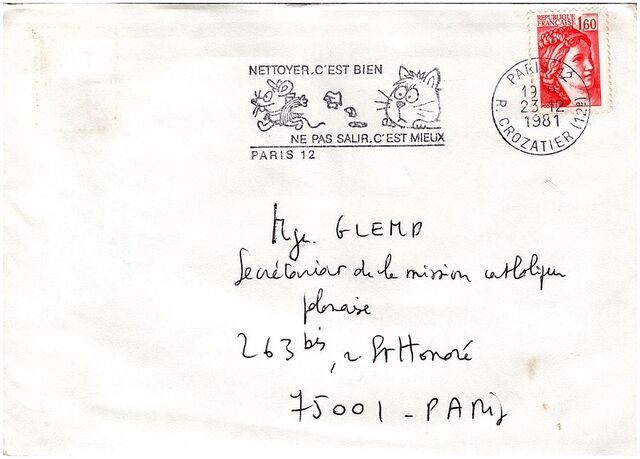 REPUBLIQUE FRANCAISE 1,60
NETTOYER.C'EST BIEN
NE PAS SALIR.C'EST MIEUX
PARIS 12
PARIS 12
19
23-12
1981
R. CROZATIER (12e)
Mgr. GLEMP
Secrétariat de la mission catholique
polonaise
263 bis, r. St Honoré
75001 - PARIS